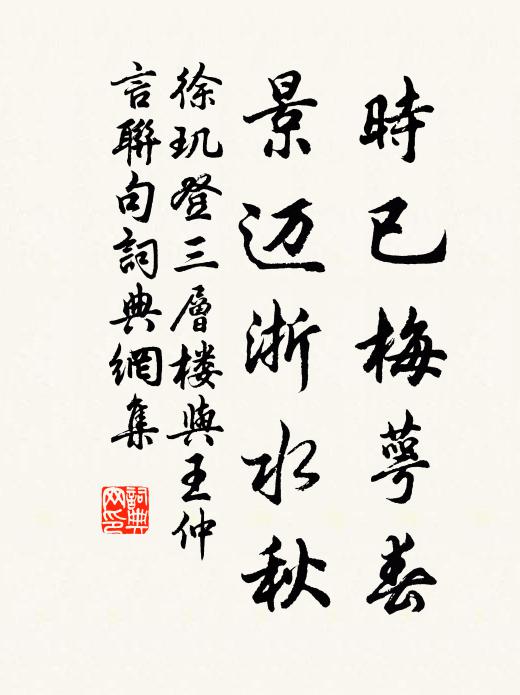 時已梅萼春
景迈浙水秋
徐玑登三層楼與王仲
言聯句詞典網集
詞典
网印